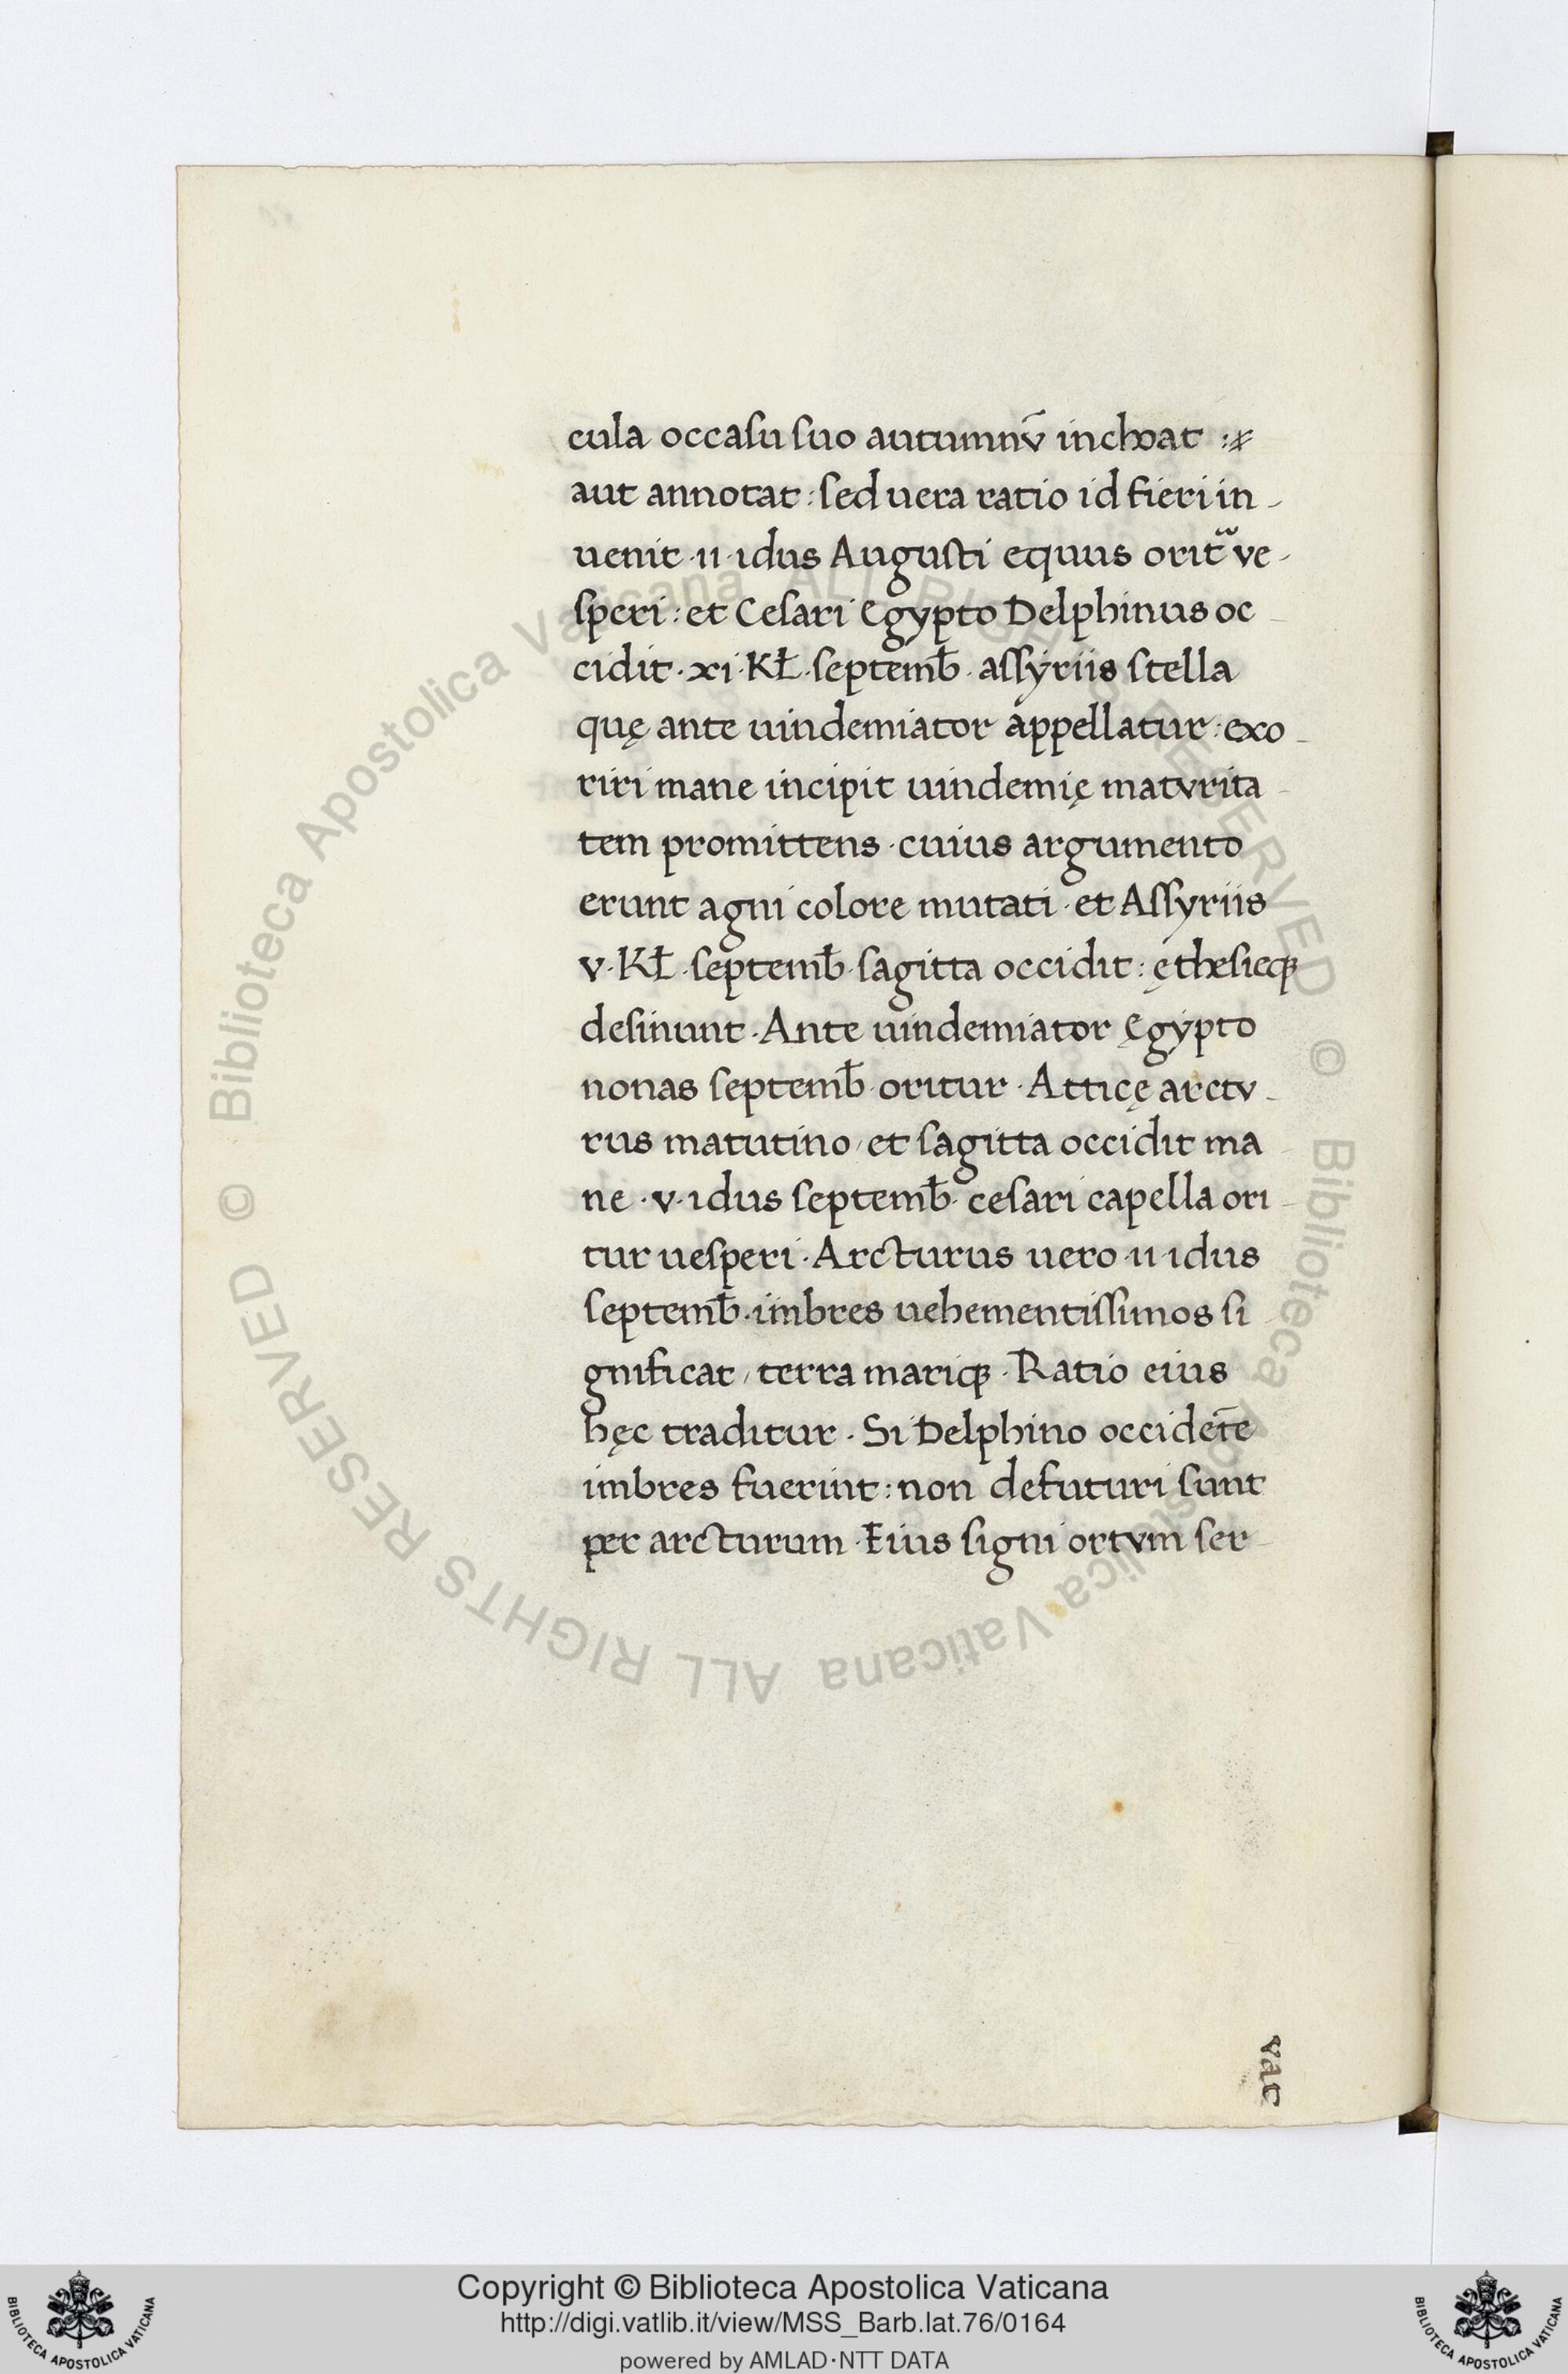 cula occasu suo autumnū inchoat :
aut annotat : sed uera ratio id fieri in-
uenit · II · idus Augusti equus orit᷑ ve-
speri : et Cesari Egypto Delphinus oc-
cidit · xi · Kƚ · septemƀ · assyriis stella
quę ante uindemiator appellatur : exo-
riri mane incipit uindemię matvrita-
tem promittens · cuius argumento
erunt agni colore mutati · et Assyriis
v · Kƚ · septemƀ · sagitta occidit : ęthesieqꝫ
desinunt · Ante uindemiator Ęgypto
nonas septemƀ · oritur · Atticę arctv-
rus matutino / et sagitta occidit ma-
ne · v · idus septemƀ · cesari capella ori-
tur uesperi · Arcturus uero · II · idus
septemƀ · imbres uehementissimos si-
gnificat / terra mariqꝫ · Ratio eius
hęc traditur · Si Delphino occidētē
imbres fuerint : non defuturi sunt
per arcturum · Eius signi ortvm ser-
vat
© Biblioteca Apostolica Vaticana ALL RIGHTS RESERVED © Biblioteca Apostolica Vaticana ALL RIGHTS RESERVED
Copyright © Biblioteca Apostolica Vaticana
http://digi.vatlib.it/view/MSS_Barb.lat.76/0164
powered by AMLAD·NTT DATA
BIBLIOTECA APOSTOLICA VATICANA
BIBLIOTECA APOSTOLICA VATICANA